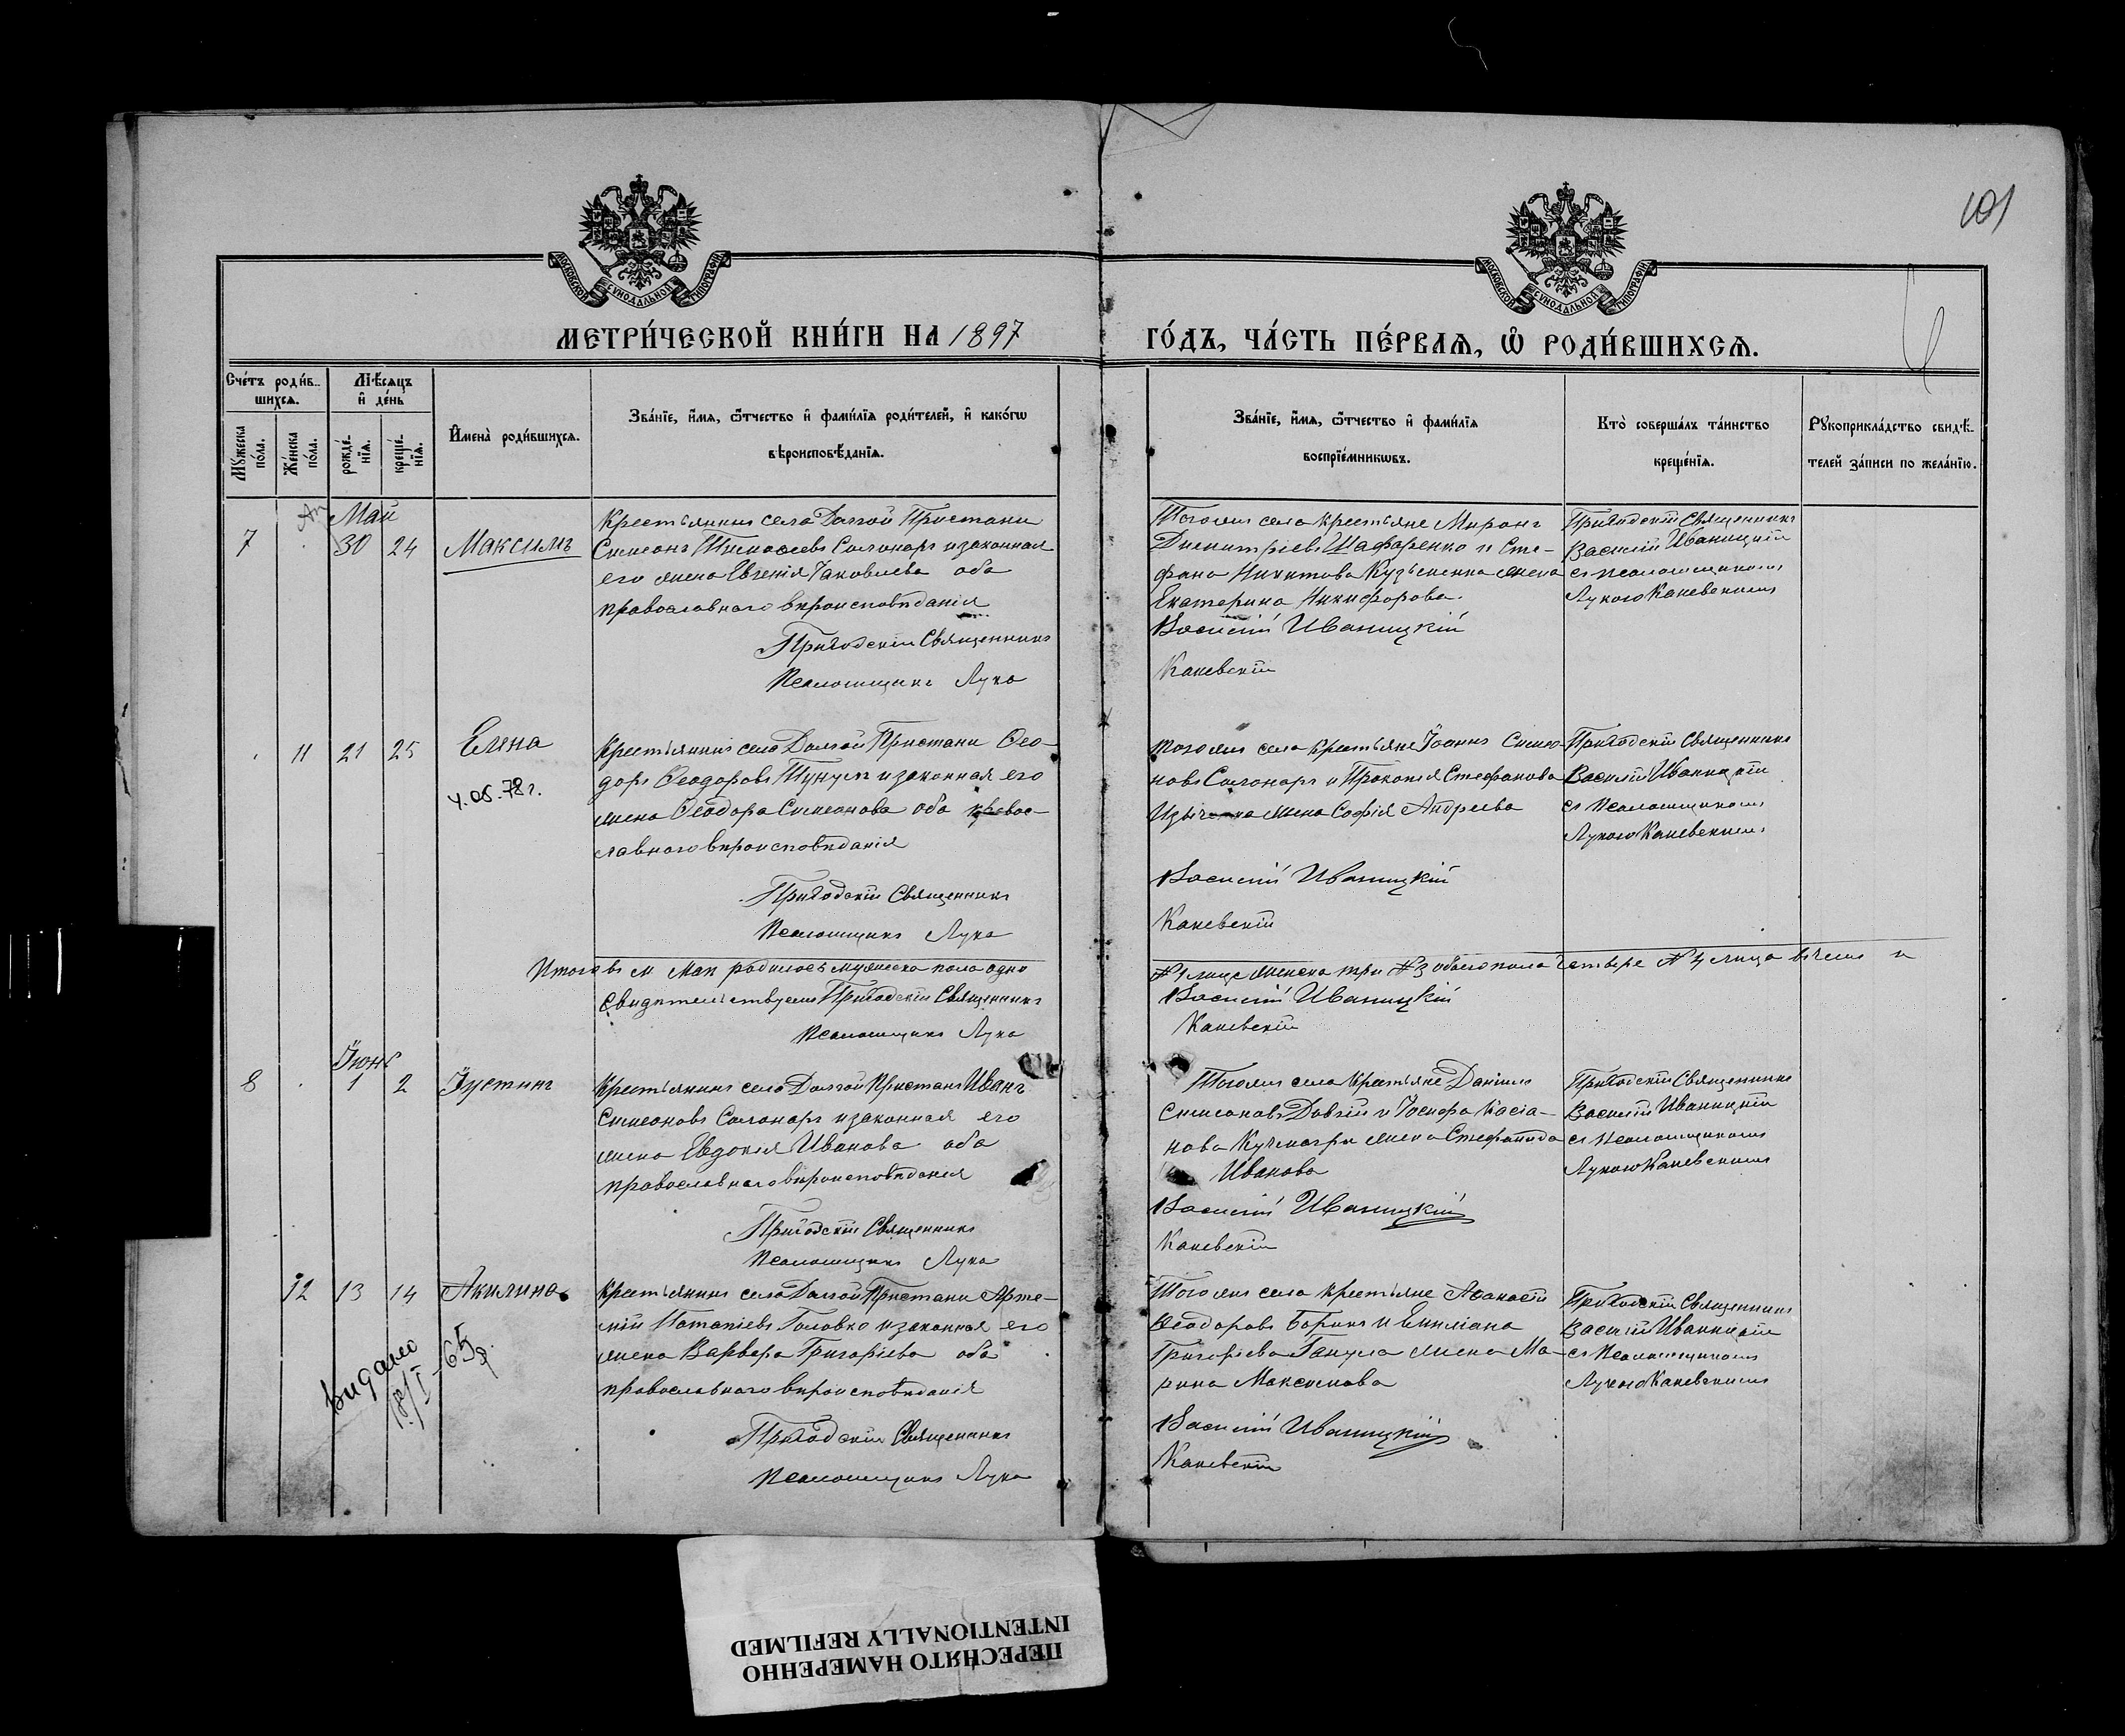 101
МОСКОВСКОЙ СУНОДАЛЬНОЙ ТИПОГРАФІИ
МОСКОВСКОЙ СУНОДАЛЬНОЙ ТИПОГРАФІИ
МЕТРИ́ЧЕСКОЙ КНИ́ГИ НА 1897
ГО́ДЪ, ЧА́СТЬ ПЕ́РВАѦ, Ѡ҆ РОДИ́ВШИХСѦ.
Сче́тъ роди́в-
шихсѧ.
Мꙋ́жеска по́ла.
Же́нска по́ла.
Мѣ́сѧцъ
и҆ де́нь
рожде́нїѧ.
креще́нїѧ.
И҆мена̀ роди́вшихсѧ.
Зва́нїе, и҆́мѧ, ѻ҆́тчество и҆ фами́лїѧ роди́телей, и҆ како́гѡ
вѣроисповѣ́данїѧ.
Зва́нїе, и҆́мѧ, ѻ҆́тчество и҆ фами́лїѧ
воспрїе́мникѡвъ.
Кто̀ соверша́лъ та́инство
креще́нїѧ.
Рꙋкоприкла́дство свидѣ́-
телей за́писи по жела́нїю.
Ап Май
7 30 24 Максимъ
Крестьянинъ села Долгой Пристани
Симеонъ Тимофеевъ Солонарь и законная
его жена Евгенія Іаковлева оба
православнаго вѣроисповѣданія
Приходскій Священникъ
Псаломщикъ Лука
Тогоже села крестьяне Миронъ
Димитріевъ Шафаренко и Сте-
фана Никитова Кузьменка жена
Екатерина Никифорова.
Василій Иваницкій
Каневскій
Приходскій Священникъ
Василій Иваницкій
съ псаломщикомъ
Лукою Каневскимъ
11 21 25 Елена
4.05.78г.
Крестьянинъ села Долгой Пристани Ѳео-
доръ Ѳеодоровъ и законная его
жена Ѳеодора Симеонова оба правос-
лавнаго вѣроисповѣданія
Приходскій Священникъ
Псаломщикъ Лука
тогоже села крестьяне Іоаннъ Симео-
новъ Солонарь и Прокопія Стефанова
жена Софія Андреева
Василій Иваницкій
Каневскій
Приходскій Священникъ
Василій Иваницкій
съ псаломщикомъ
Лукою Каневскимъ
Итого въ м Маѣ родилось мужеска пола одно
№ 1 лице женска три № 3 обоего пола четыре № 4 лица
Свидѣтельствуемъ Приходскій Священникъ
Василій Иваницкій
Псаломщикъ Лука
Каневскій
Іюнь
8 1 2 Іустинъ
Крестьянинъ села Долгой Пристани Иванъ
Симеоновъ Солонарь и законная его
жена Евдокія Иванова оба
православнаго вѣроисповѣданія
Приходскій Священникъ
Псаломщикъ Лука
Тогоже села крестьяне Даніилъ
Симеоновъ Довгій и Іосифа Касіа-
нова жена Стефанида
Иванова
Василій Иваницкій
Каневскій
Приходскій Священникъ
Василій Иваницкій
съ псаломщикомъ
Лукою Каневскимъ
12 13 14 Акилина
Видано
18/I-65
Крестьянинъ села Долгой Пристани Арте-
мій Потапіевъ Головко и законная его
жена Варвара Григоріева оба
православнаго вѣроисповѣданія
Приходскій Священникъ
Псаломщикъ Лука
Тогоже села крестьяне Аѳанасій
Ѳеодоровъ и Емиліана
Григоріева жена Ма-
рина Максимова
Василій Иваницкій
Каневскій
Приходскій Священникъ
Василій Иваницкій
съ псаломщикомъ
Лукою Каневскимъ
ПЕРЕСНЯТО НАМЕРЕННО
INTENTIONALLY REFILMED